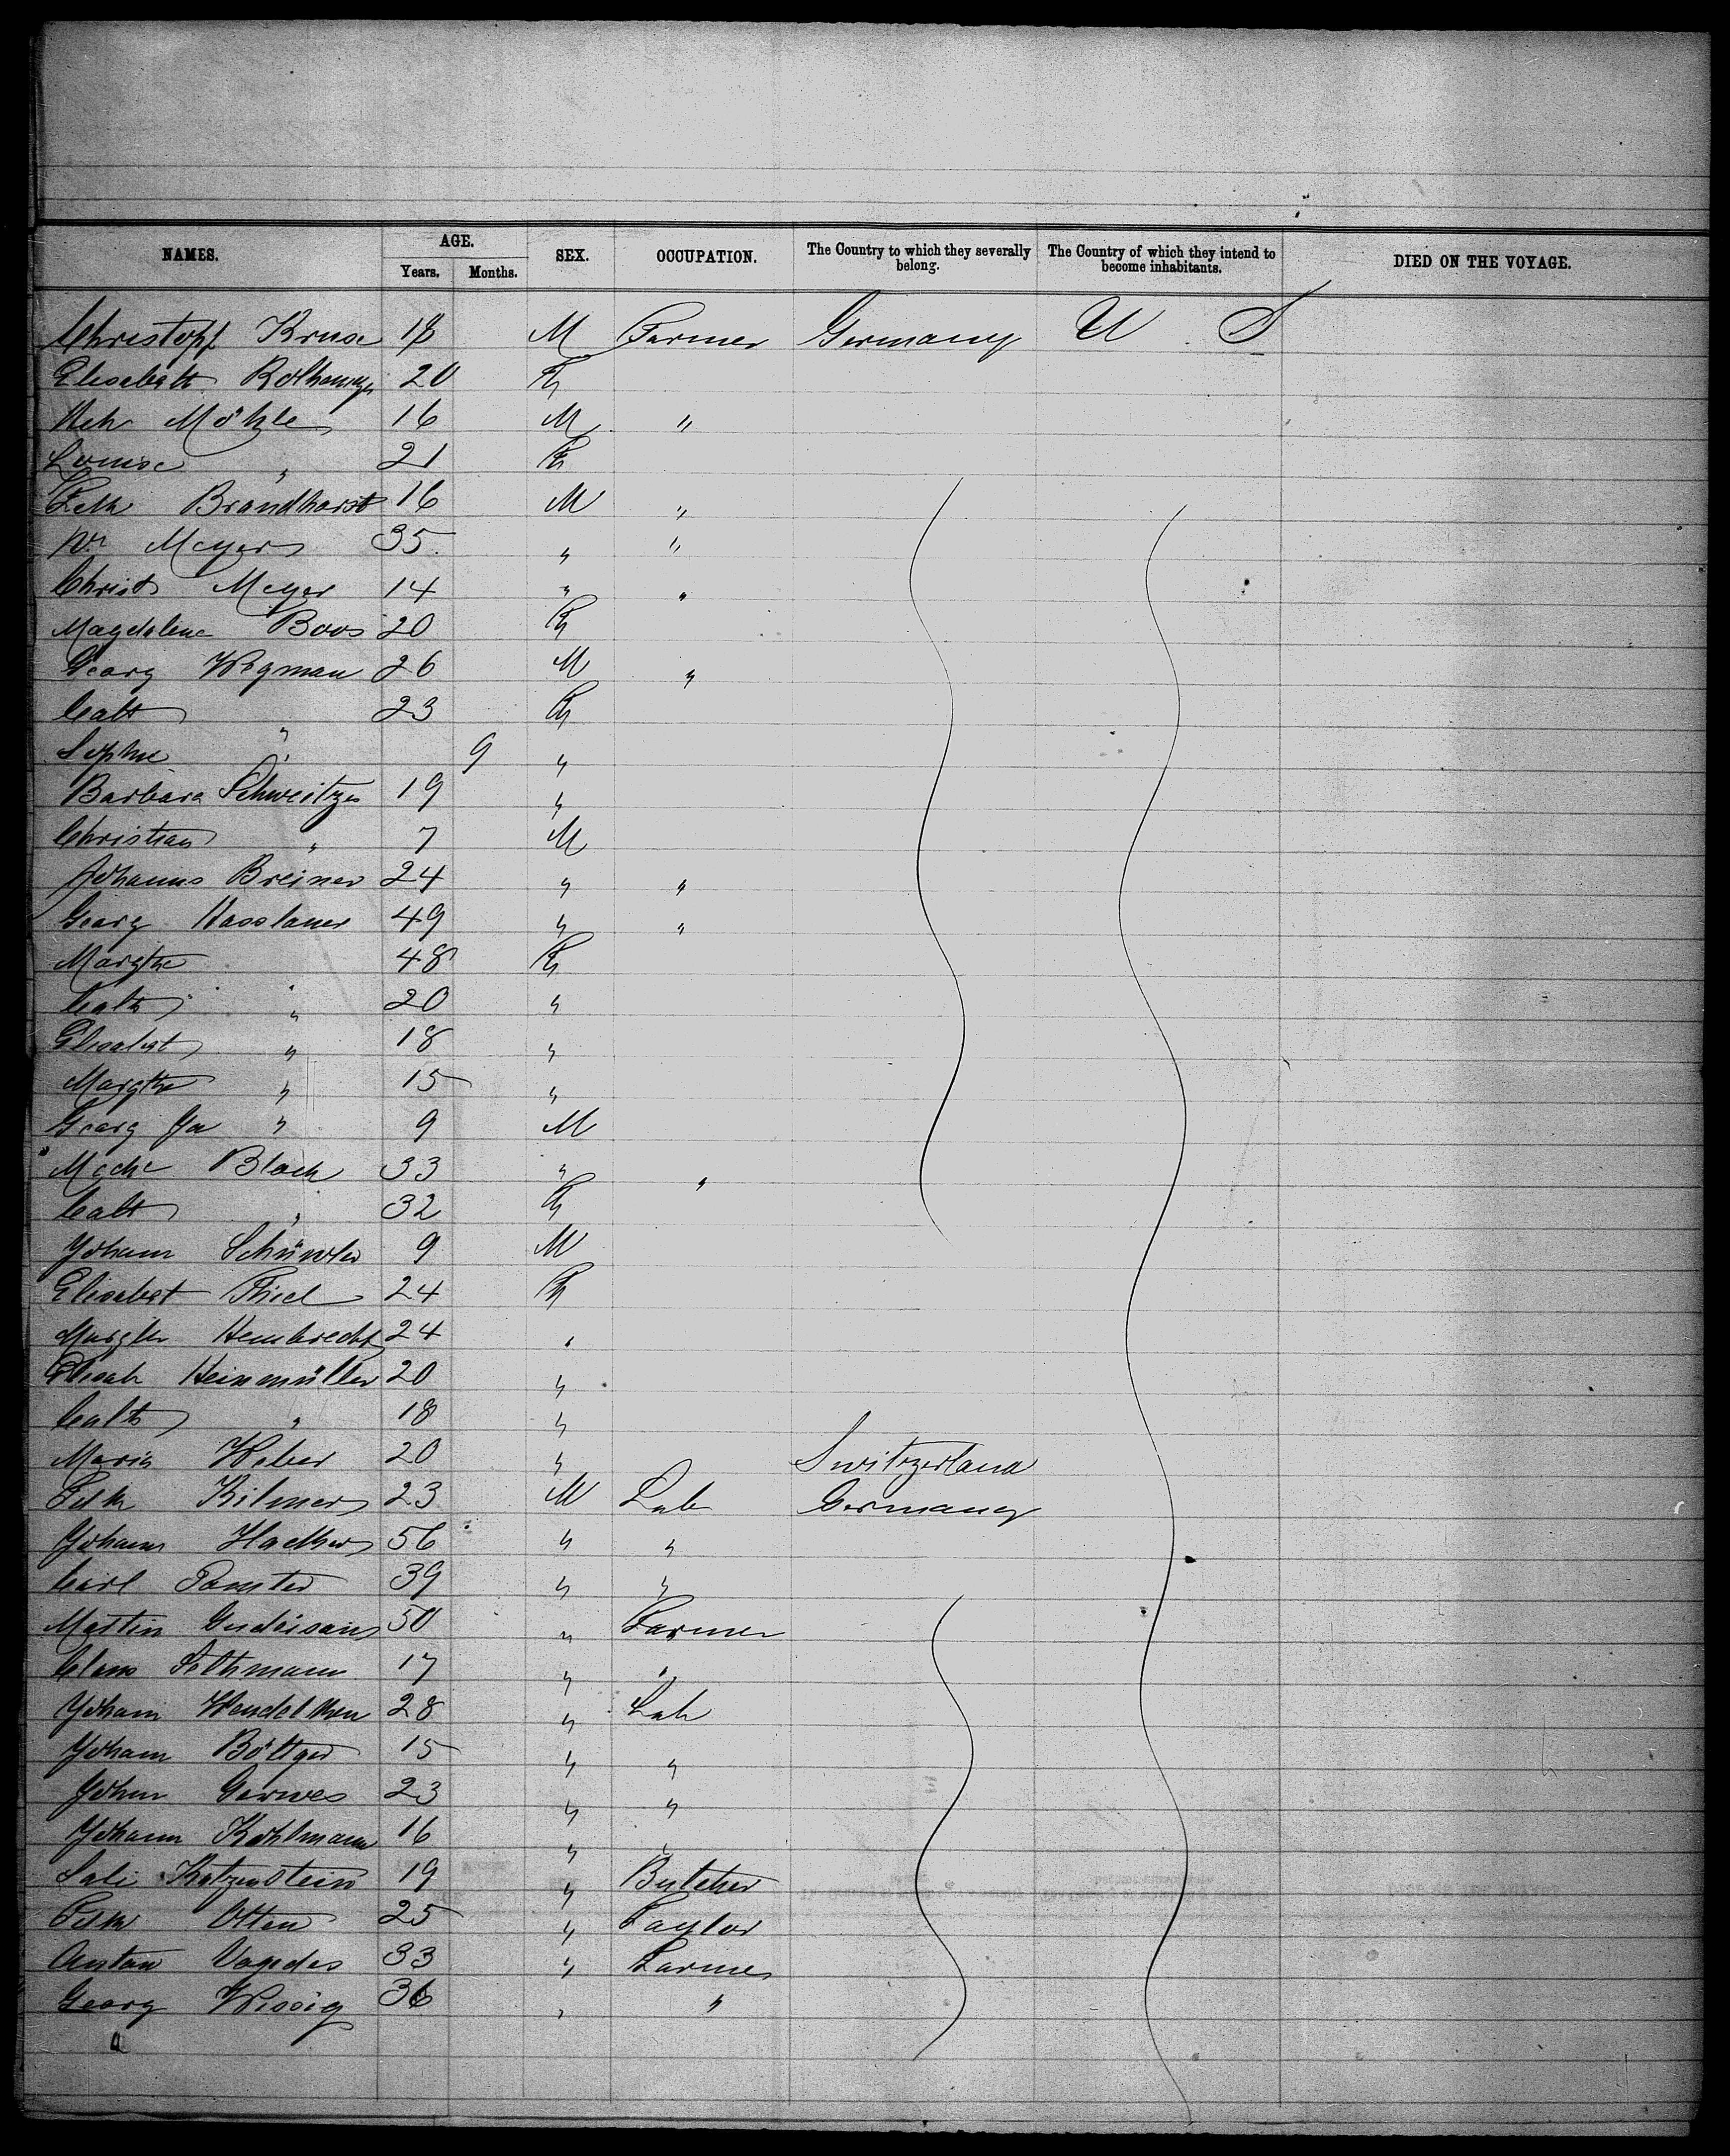 NAMES. AGE. SEX. OCCUPATION. The Country to which they severally belong. The Country of which they intend to become inhabitants. DIED ON THE VOYAGE.
Years. Months.
Christoph Kruse 18 M Farmer Germany U S
Elisabeth 20 F
Möhle 16 M "
Louise " 21 F
Brandhorst 16 M "
Wm Meyer 35 " "
Christ Meyer 14 " "
Magdalena Boos 20 F
Georg Wegman 26 M "
Cath " 23 F
Sophie " 9 "
Barbara Schweitzer 19 "
Christian " 7 M
Johannes Breiner 24 " "
Georg Hasslauer 49 " "
Margthe 48 F
Cath " 20 "
Elisabet " 18 "
Margthe " 15 "
Georg " 9 M
Block 33 " "
Cath " 32 F
Johann 9 M
Elisabet Thiel 24 F
Hembrecht 24 "
Elisab Heinmüller 20 "
Cath " 18 "
Maria Weber 20 " Switzerland
Kilmer 23 M Lab Germany
Johann 56 " "
Carl 39 " "
Martin 50 " Farmer
Claus 17 " "
Johann 28 " Lab
Johann Böttger 15 " "
Johann Gerwes 23 " "
Johann Kohlmann 16 " "
Sali Katzenstein 19 " Butcher
Otten 25 " Taylor
Anton Vagedes 33 " Farmer
Georg Wissig 36 " "